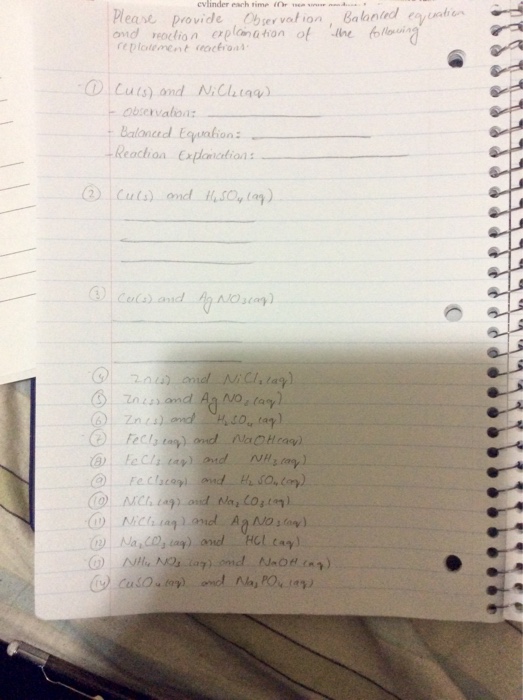 cylinder each time (Or use
Please provide Observation, Balanced equation
and reaction explanation of the following
replacement reactions:
① Cu(s) and NiCl₂(aq)
- Observations:
- Balanced Equation:
- Reaction Explanation:
② Cu(s) and H₂SO₄(aq)
③ Cu(s) and AgNO₃(aq)
④ Zn(s) and NiCl₂(aq)
⑤ Zn(s) and AgNO₃(aq)
⑥ Zn(s) and H₂SO₄(aq)
⑦ FeCl₃(aq) and NaOH(aq)
⑧ FeCl₃(aq) and NH₃(aq)
⑨ FeCl₃(aq) and H₂SO₄(aq)
⑩ NiCl₂(aq) and Na₂CO₃(aq)
⑪ NiCl₂(aq) and AgNO₃(aq)
⑫ Na₂CO₃(aq) and HCl(aq)
⑬ NH₄NO₃(aq) and NaOH(aq)
⑭ CuSO₄(aq) and Na₃PO₄(aq)